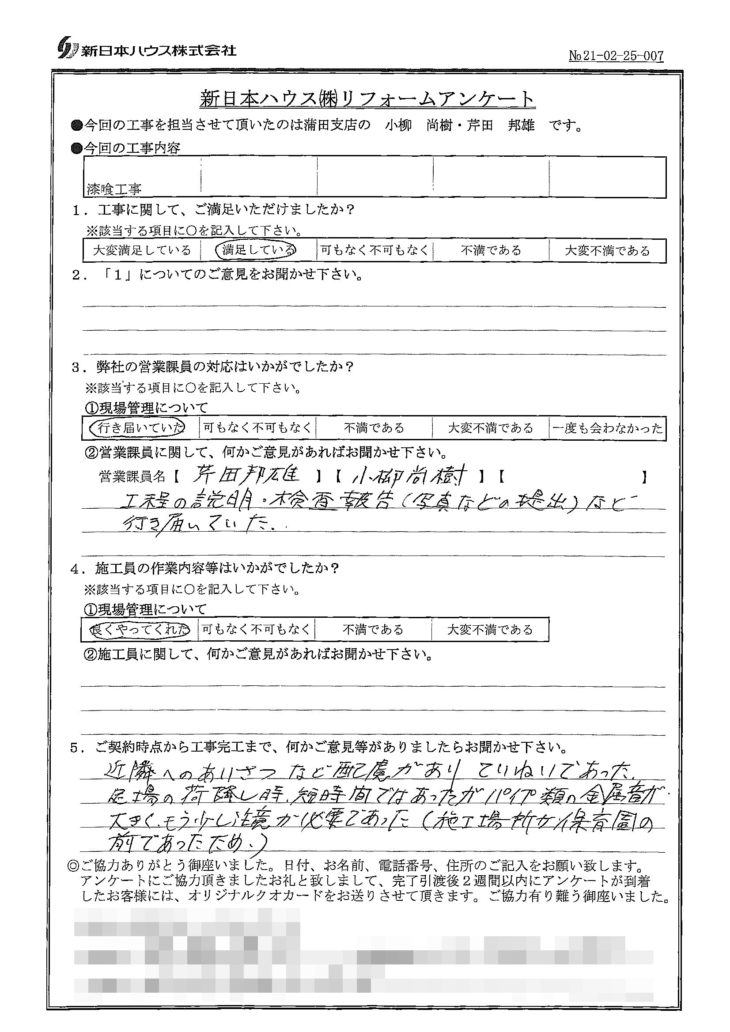 新日本ハウス株式会社
№21-02-25-007
新日本ハウス㈱リフォームアンケート
●今回の工事を担当させて頂いたのは蒲田支店の 小柳 尚樹・芹田 邦雄 です。
●今回の工事内容
漆喰工事
1．工事に関して、ご満足いただけましたか？
※該当する項目に○を記入して下さい。
大変満足している 満足している 可もなく不可もなく 不満である 大変不満である
2．「1」についてのご意見をお聞かせ下さい。
3．弊社の営業課員の対応はいかがでしたか？
※該当する項目に○を記入して下さい。
①現場管理について
行き届いていた 可もなく不可もなく 不満である 大変不満である 一度も会わなかった
②営業課員に関して、何かご意見があればお聞かせ下さい。
営業課員名【 芹田邦雄 】【 小柳尚樹 】【 】
工程の説明・検査報告(写真などの提出)など
行き届いていた．
4．施工員の作業内容等はいかがでしたか？
※該当する項目に○を記入して下さい。
①現場管理について
良くやってくれた 可もなく不可もなく 不満である 大変不満である
②施工員に関して、何かご意見があればお聞かせ下さい。
5．ご契約時点から工事完工まで、何かご意見等がありましたらお聞かせ下さい。
近隣へのあいさつなど配慮があり ていねいであった．
足場の荷降し時、短時間ではあったがパイプ類の金属音が
大きく、もう少し注意が必要であった(施工場所が保育園の
前であったため．)
◎ご協力ありがとう御座いました。日付、お名前、電話番号、住所のご記入をお願い致します。
アンケートにご協力頂きましたお礼と致しまして、完了引渡後２週間以内にアンケートが到着
したお客様には、オリジナルクオカードをお送りさせて頂きます。ご協力有り難う御座いました。